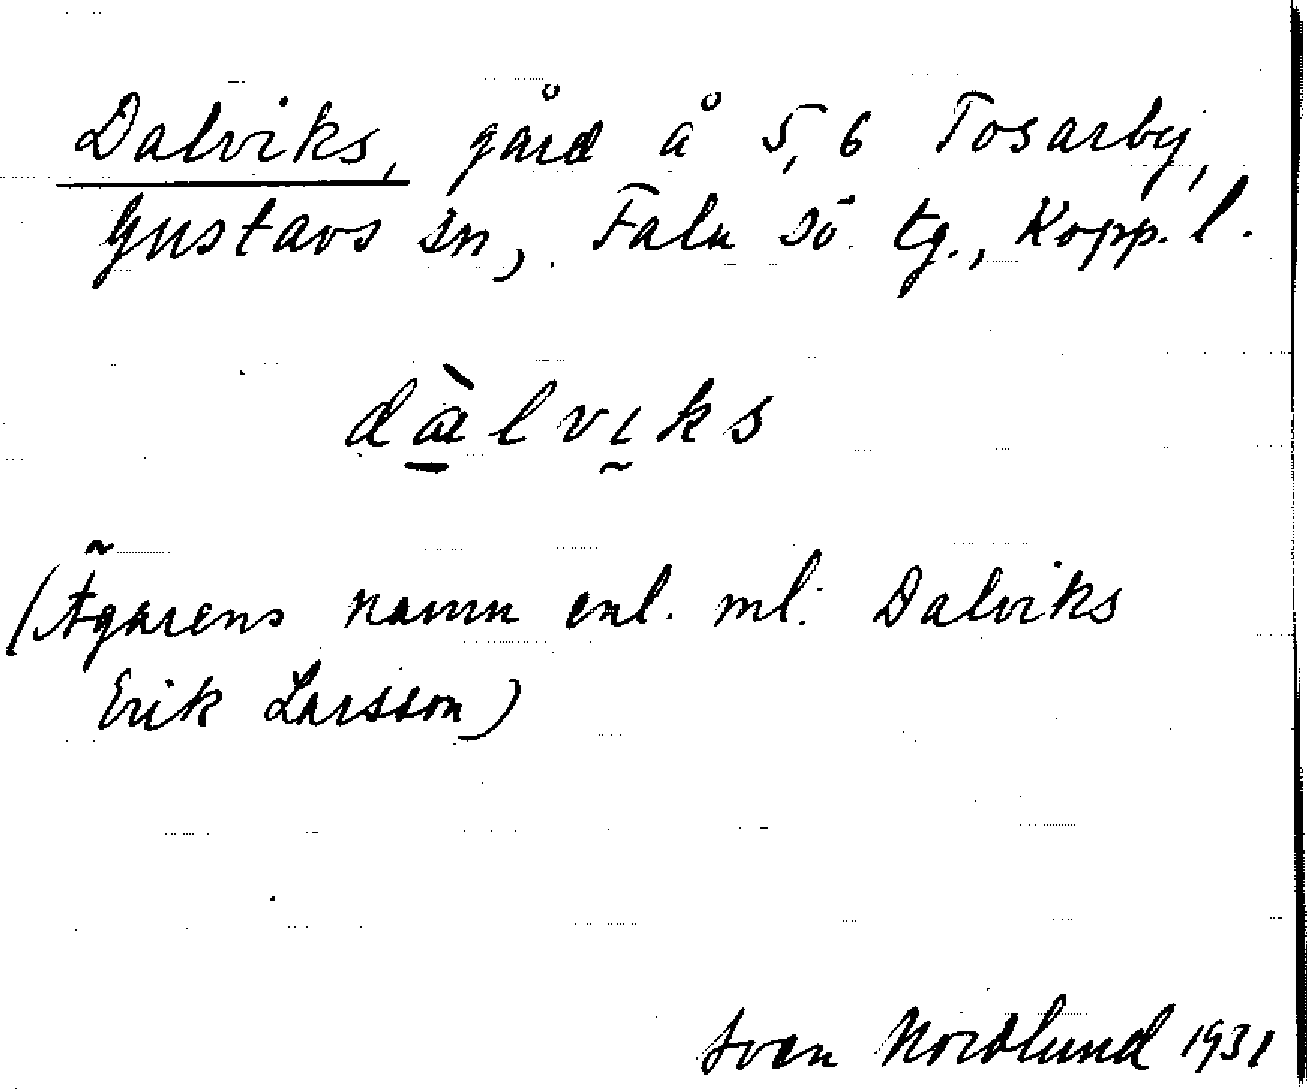 Dalviks, gård å 5,6 Tosarby,
Gustavs sn, Falu sö tg., Kopp. l.
dà̱lvɩ̰ks
(Ägarens namn enl. ml: Dalviks
Erik Larsson)
Sven Nordlund 1931